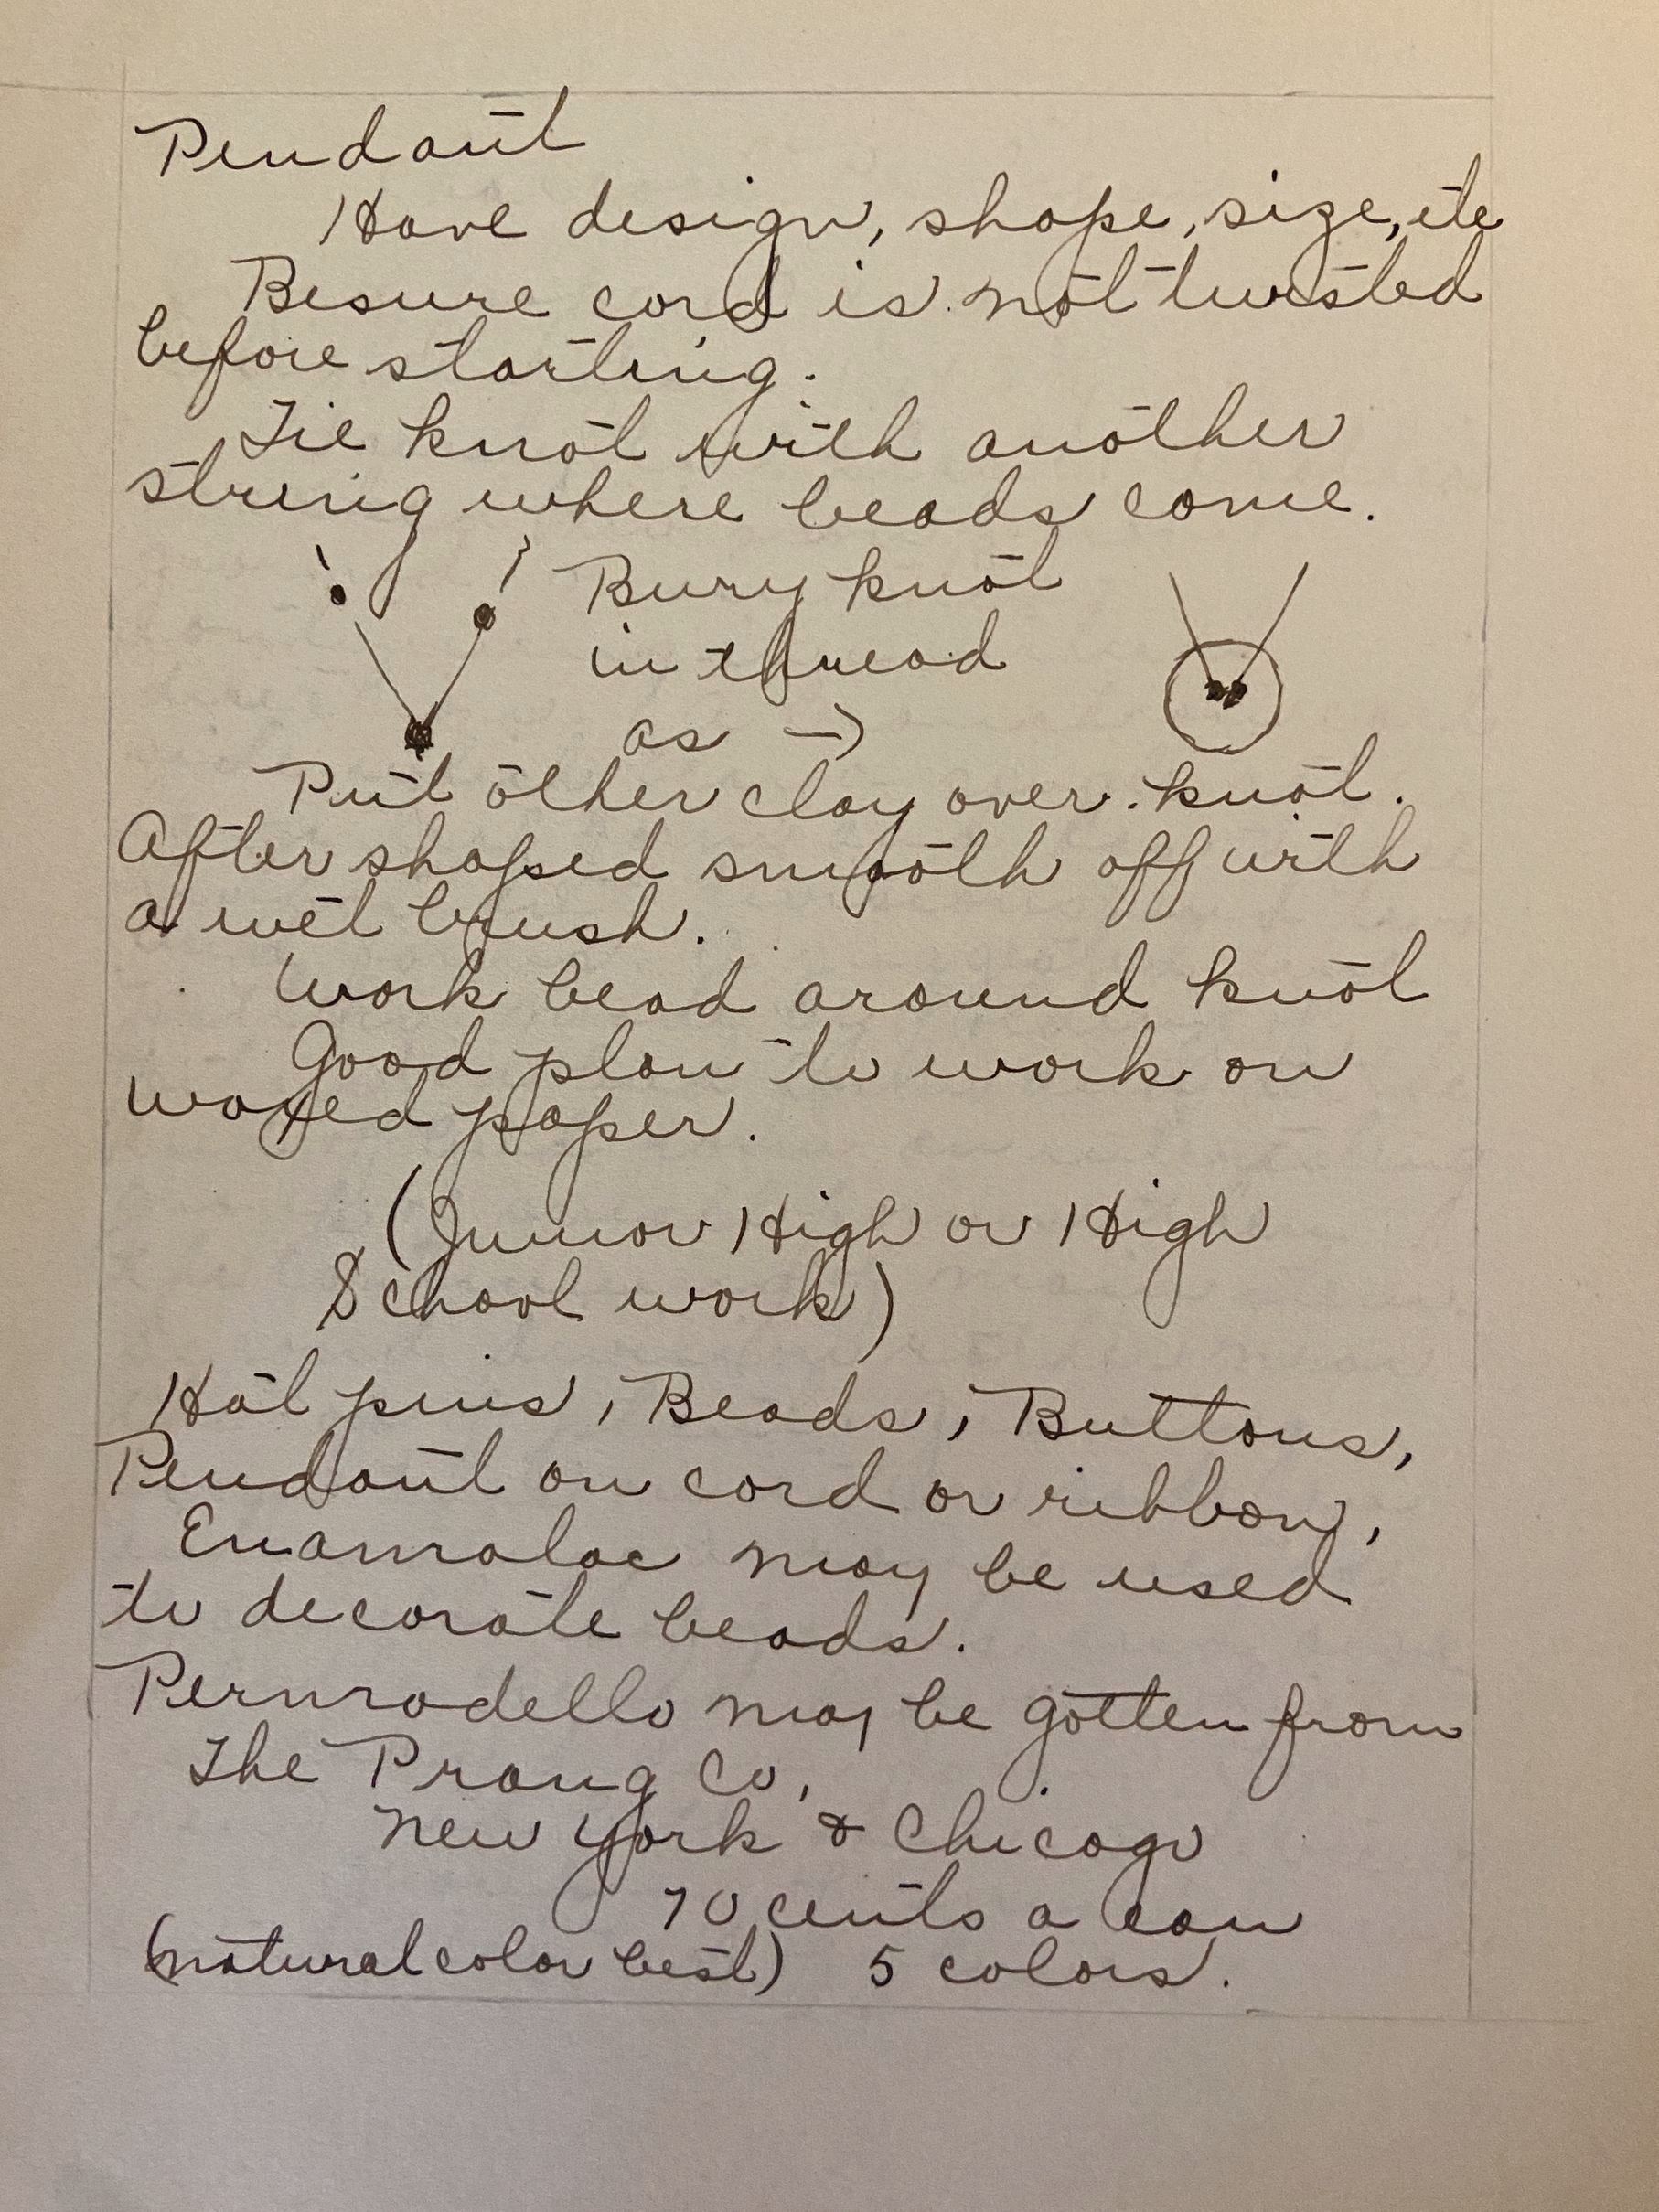 Pendant
Have design, shape, size, etc
Besure cord is not twisted
before starting.
Tie knot with another
string where beads come.
Bury knot
in thread
as →
Put other clay over knot.
After shaped smooth off with
a wet brush.
Work bead around knot
Good plan to work on
waxed paper.
(Junior High or High
School work)
Hat pins, Beads, Buttons,
Pendant on cord or ribbon,
Enamalac may be used
to decorate beads.
Permodello may be gotten from
The Prang Co,
New York & Chicago
70 cents a can
(natural color best) 5 colors.